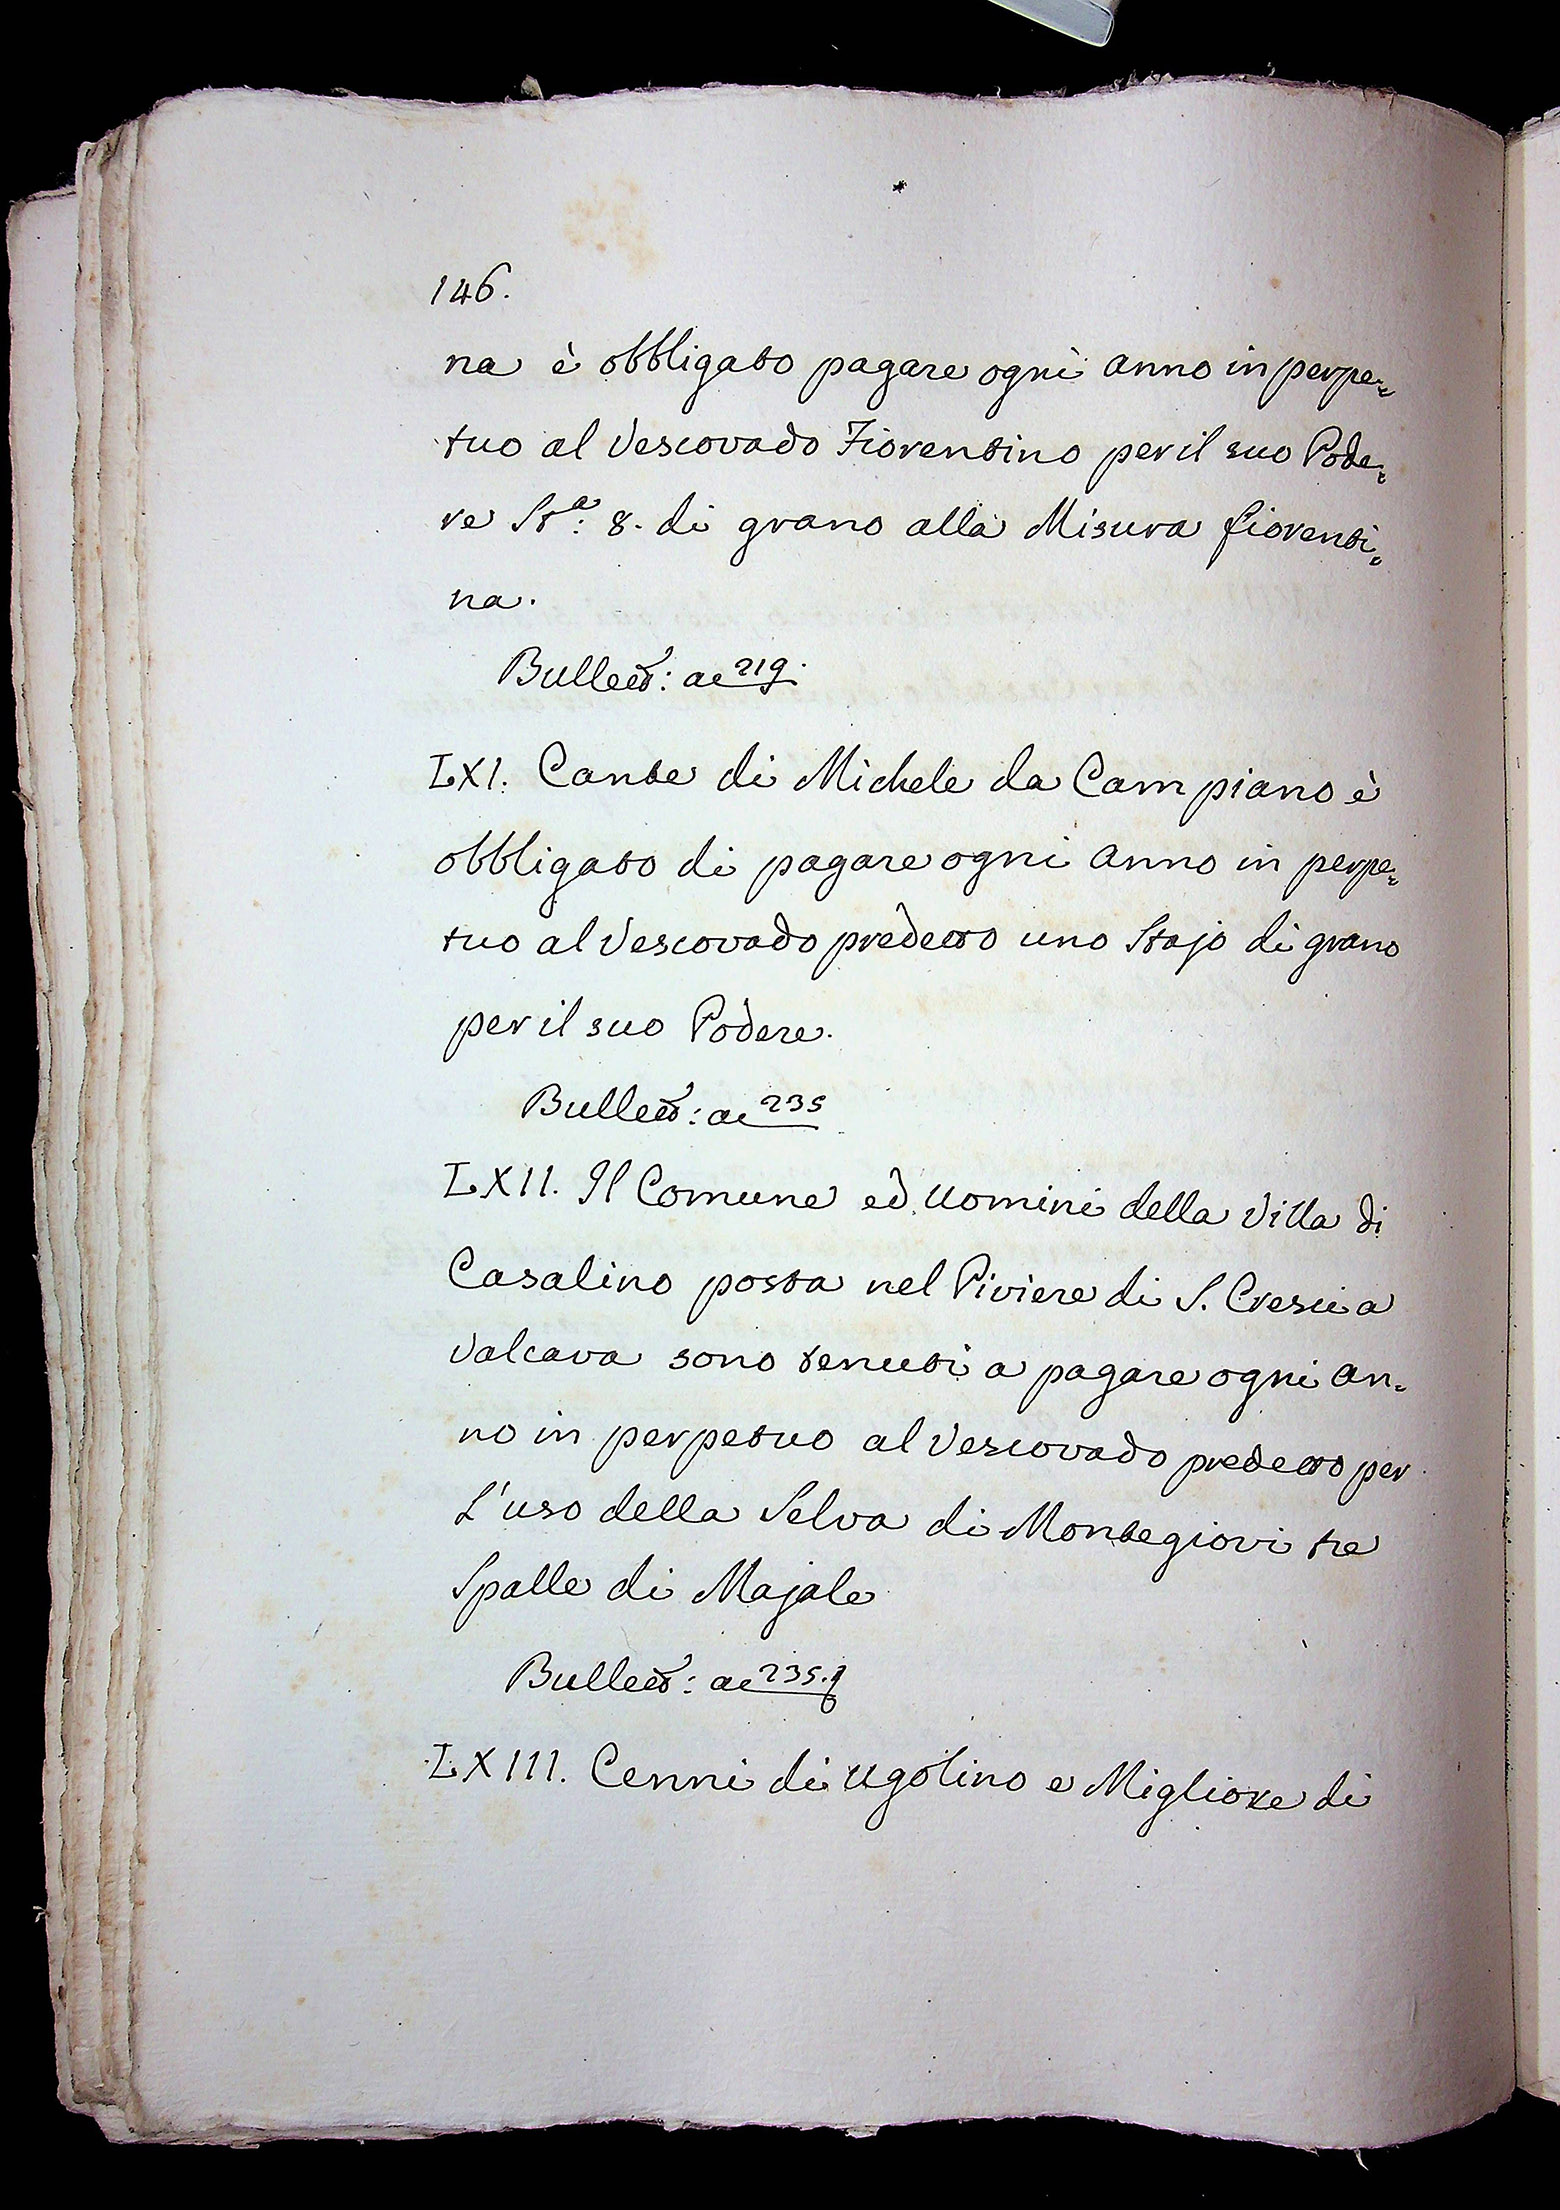 146.
na è obbligato pagare ogni anno in perpe=
tuo al Vescovado Fiorentino per il suo Pode=
re Stª: 8. di grano alla Misura fiorenti=
na.
Bullett: ac 219.
LXI. Cante di Michele da Campiano è
obbligato di pagare ogni anno in perpe=
tuo al Vescovado predetto uno Stajo di grano
per il suo Podere.
Bullett: ac 235
LXII. Il Comune ed uomini della Villa di
Casalino posta nel Piviere di S. Cresci a
Valcava sono tenuti a pagare ogni an=
no in perpetuo al Vescovado predetto per
L'uso della Selva di Montegiovi tre
Spalle di Majale
Bullett: ac 235.
LXIII. Cenni di Ugolino e Migliore di